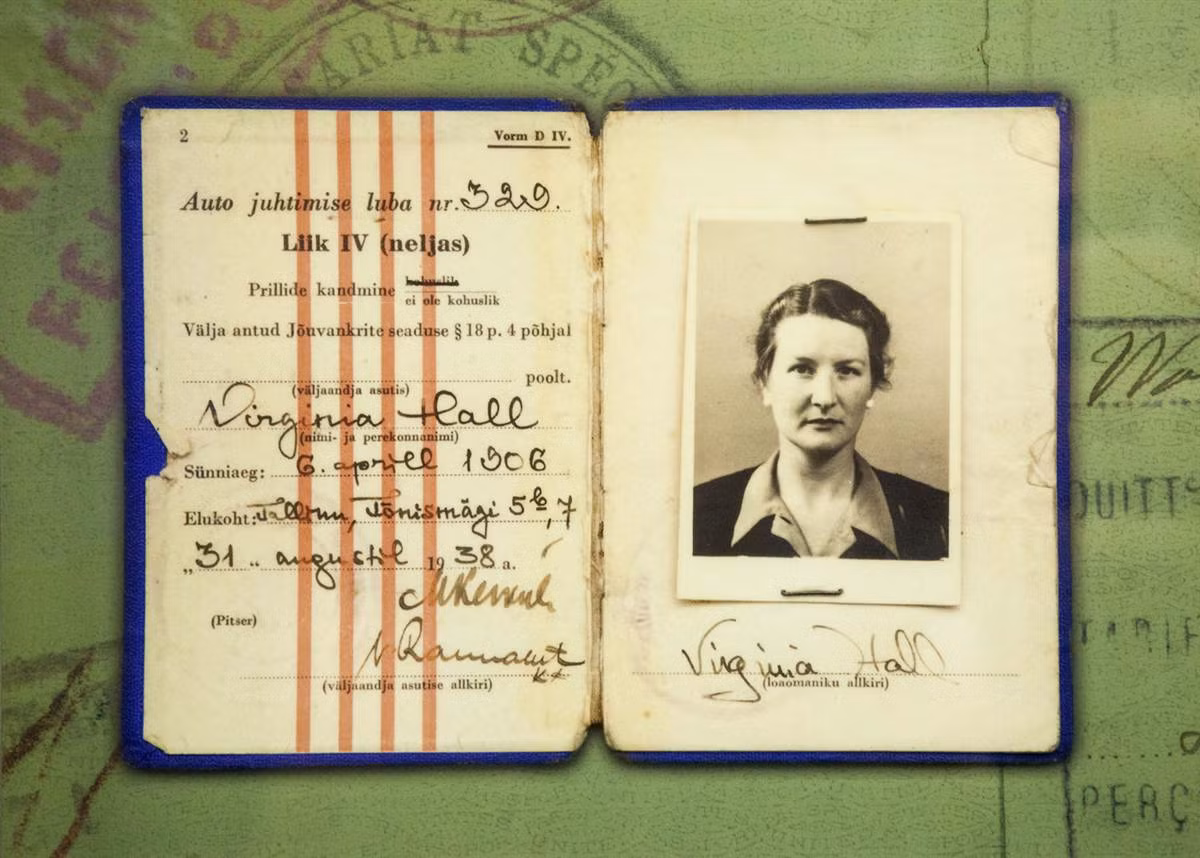 SARIAT SPÉC
2
Vorm D IV.
Auto juhtimise luba nr. 329.
Liik IV (neljas)
Prillide kandmine kohuslik
ei ole kohuslik
Välja antud Jõuvankrite seaduse § 18 p. 4 põhjal
poolt.
(väljaandja asutis)
Virginia Hall
(nimi- ja perekonnanimi)
Sünniaeg: 6. aprill 1906
Elukoht: Tallinn, Tõnismägi 5b, 7
„31 „ augustil 1938 a.
(Pitser)
(väljaandja asutise allkiri)
Virginia Hall
(loaomaniku allkiri)
QUITT
TARIF
PERÇ